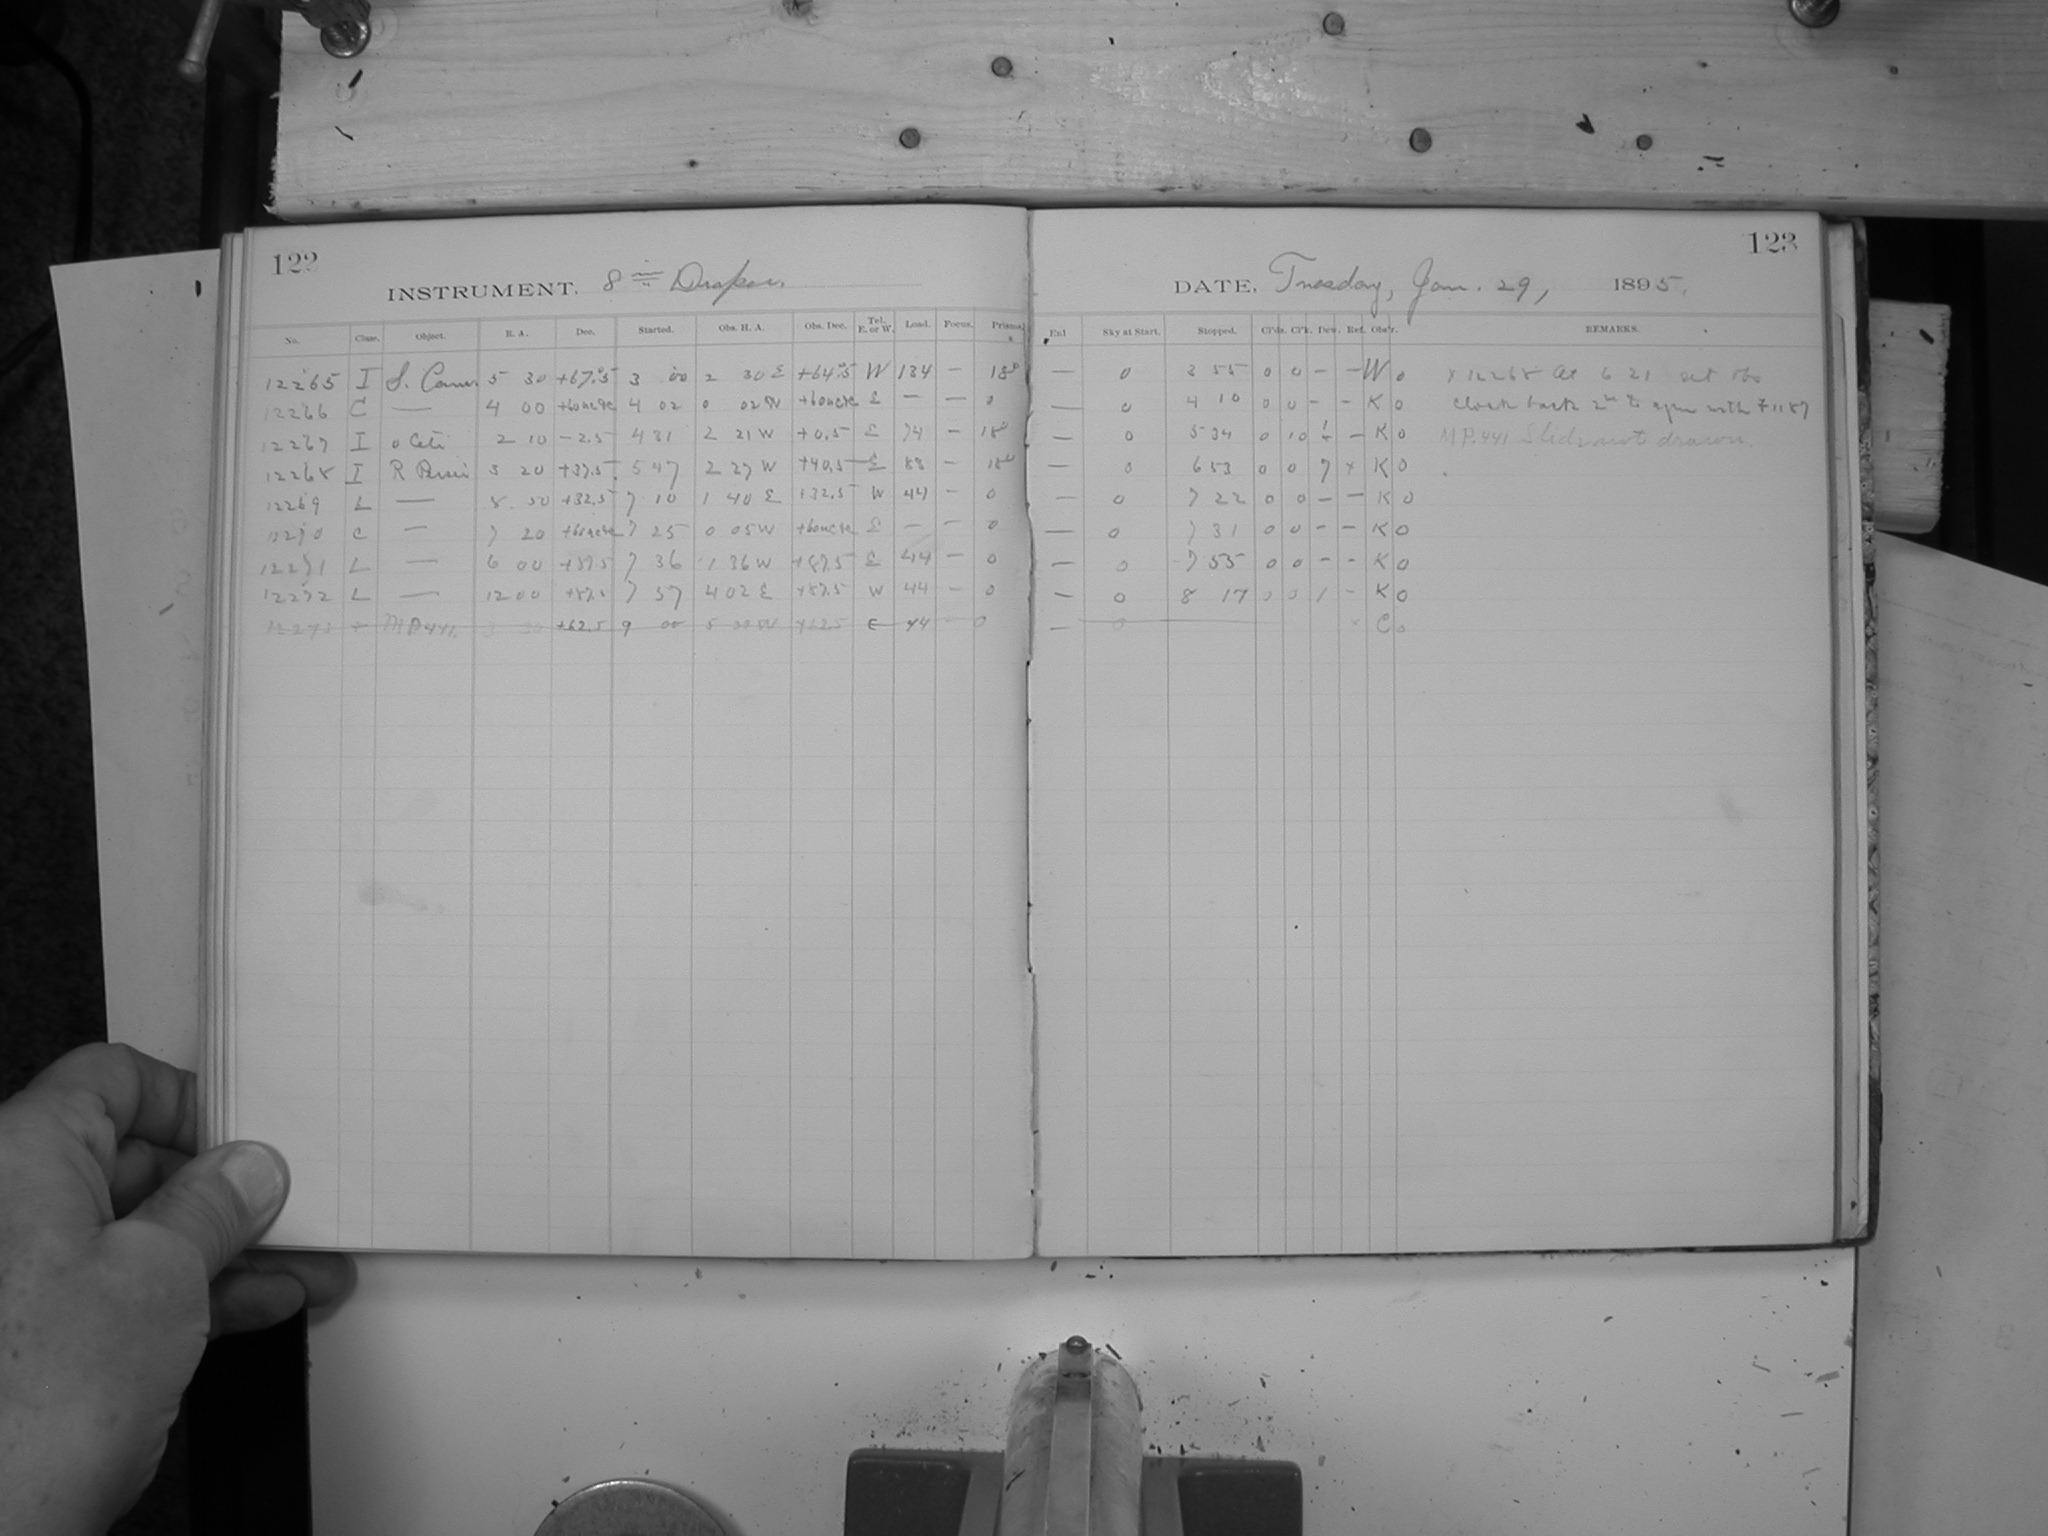 122
INSTRUMENT. 8 in Draper.
No. Class. Object. R. A. Dec. Started. Obs. H. A. Obs. Dec. Tel. E. or W. Load. Focus. Prisms.
12265 I S. Cam. 5 30 +67.5 3 00 2 30 E +64.5 W 134 — 18°
12266 C — 4 00 4 02 0 02 W E — — 0
12267 I o Ceti 2 10 -2.5 4 31 2 21 W +0.5 E 74 — 18°
12268 I R Persei 3 20 +37.5 5 47 2 27 W +40.5 E 88 — 18°
12269 L — 8 50 +32.5 7 10 1 40 E +32.5 W 44 — 0
12270 C — 7 20 7 25 0 05 W E — — 0
12271 L — 6 00 +87.5 7 36 1 36 W +87.5 E 44 — 0
12272 L — 12 00 +87.5 7 57 4 02 E +87.5 W 44 — 0
12273 MP.441. +62.5 9 00 5 +62.5 E 44 — 0
123
DATE. Tuesday, Jan. 29, 1895.
Enl Sky at Start. Stopped. Cl'ds. Cl'k. Dew. Ref. Obs'r. REMARKS.
— 0 3 55 0 0 - - W 0 x 12268 At 6 21 set
— 0 4 10 0 0 - - K 0 clock back 2m to agree with F1187
— 0 5 34 0 10 - K 0 MP.441 Slide not drawn.
— 0 6 53 0 0 7 x K 0
— 0 7 22 0 0 - - K 0
— 0 7 31 0 0 - - K 0
— 0 7 55 0 0 - - K 0
— 0 8 17 0 0 1 - K 0
— 0 x C 0